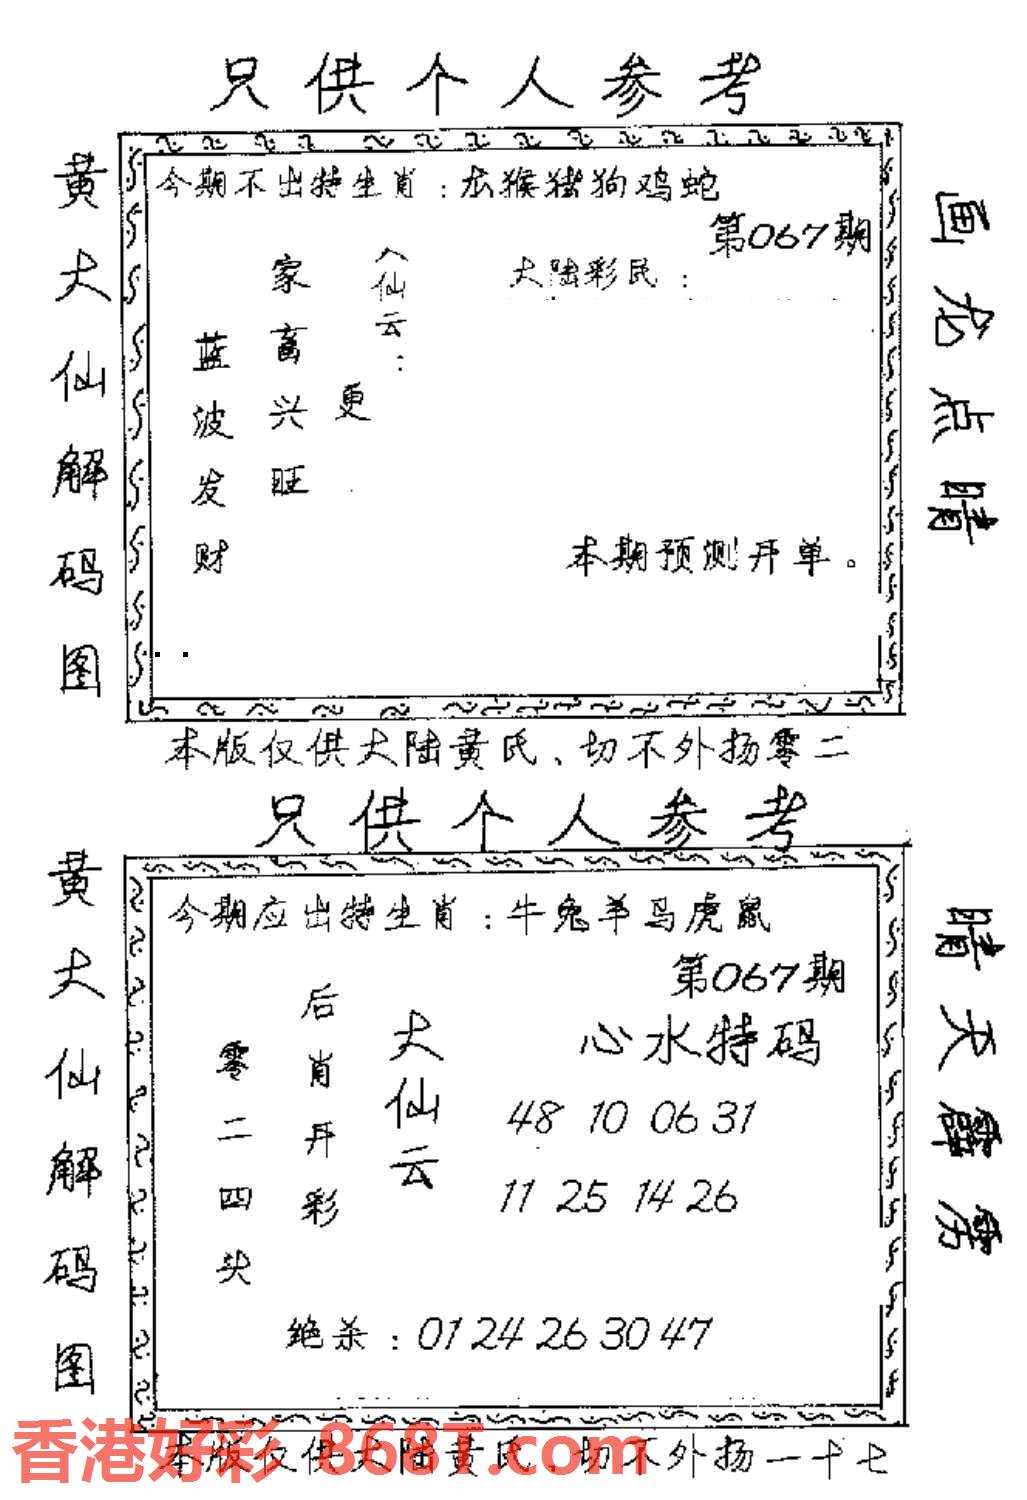 只供个人参考
黄大仙解码图
今期不出特生肖：龙猴猪狗鸡蛇
第067期
大陆彩民：
大仙云：
家畜兴旺更
蓝波发财
本期预测开单。
画龙点睛
本版仅供大陆黄氏、切不外扬零二
只供个人参考
黄大仙解码图
今期应出特生肖：牛兔羊马虎鼠
第067期
心水特码
48 10 06 31
11 25 14 26
大仙云
后肖开彩
零二四头
绝杀：01 24 26 30 47
晴天霹雳
本版仅供大陆黄氏、切不外扬一十七
香港好彩 868T.com